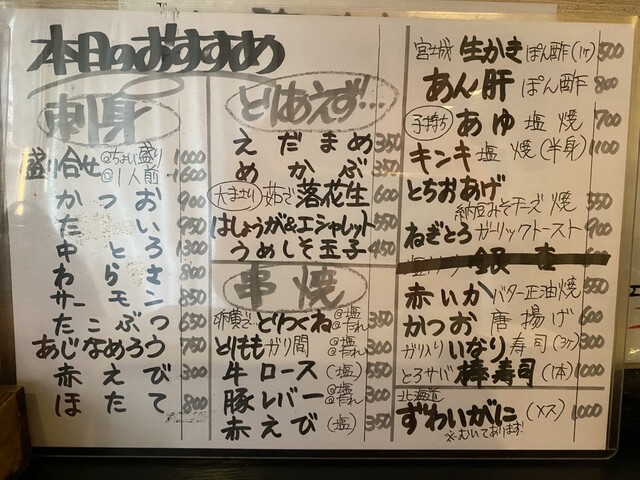 本日のおすすめ
刺身
盛り合せ @ちょい盛り 1000
@1人前 1600
かつお 900
かた 950
中とろ 1300
わらさ 800
サーモン 850
たこぶつ 650
あじなめろう 750
赤えび
ほたて 800
とりあえず!…
えだまめ 350
めかぶ 350
大まさり 茹で落花生 600
はしょうが&エシャレット 550
うめしそ玉子 450
串焼
卵黄で とりつくね @塩 @たれ 350
とりもも ガリ間 @塩 @たれ 300
牛ロース (塩) 550
豚レバー @塩 @たれ 300
赤えび (塩) 350
宮城 生かき ぽん酢(1ヶ) 500
あん肝 ぽん酢 800
子持ち あゆ 塩焼 700
キンキ 塩焼(半身) 1100
とちおあげ
納豆みそチーズ焼 550
ねぎとろ ガーリックトースト 900
銀杏
赤いか バター正油焼 550
かつお 唐揚げ 600
ガリ入り いなり寿司(3ヶ) 300
とろサバ 棒寿司(1本) 1000
北海道
ずわいがに (メス) 1000
※むいてあります!